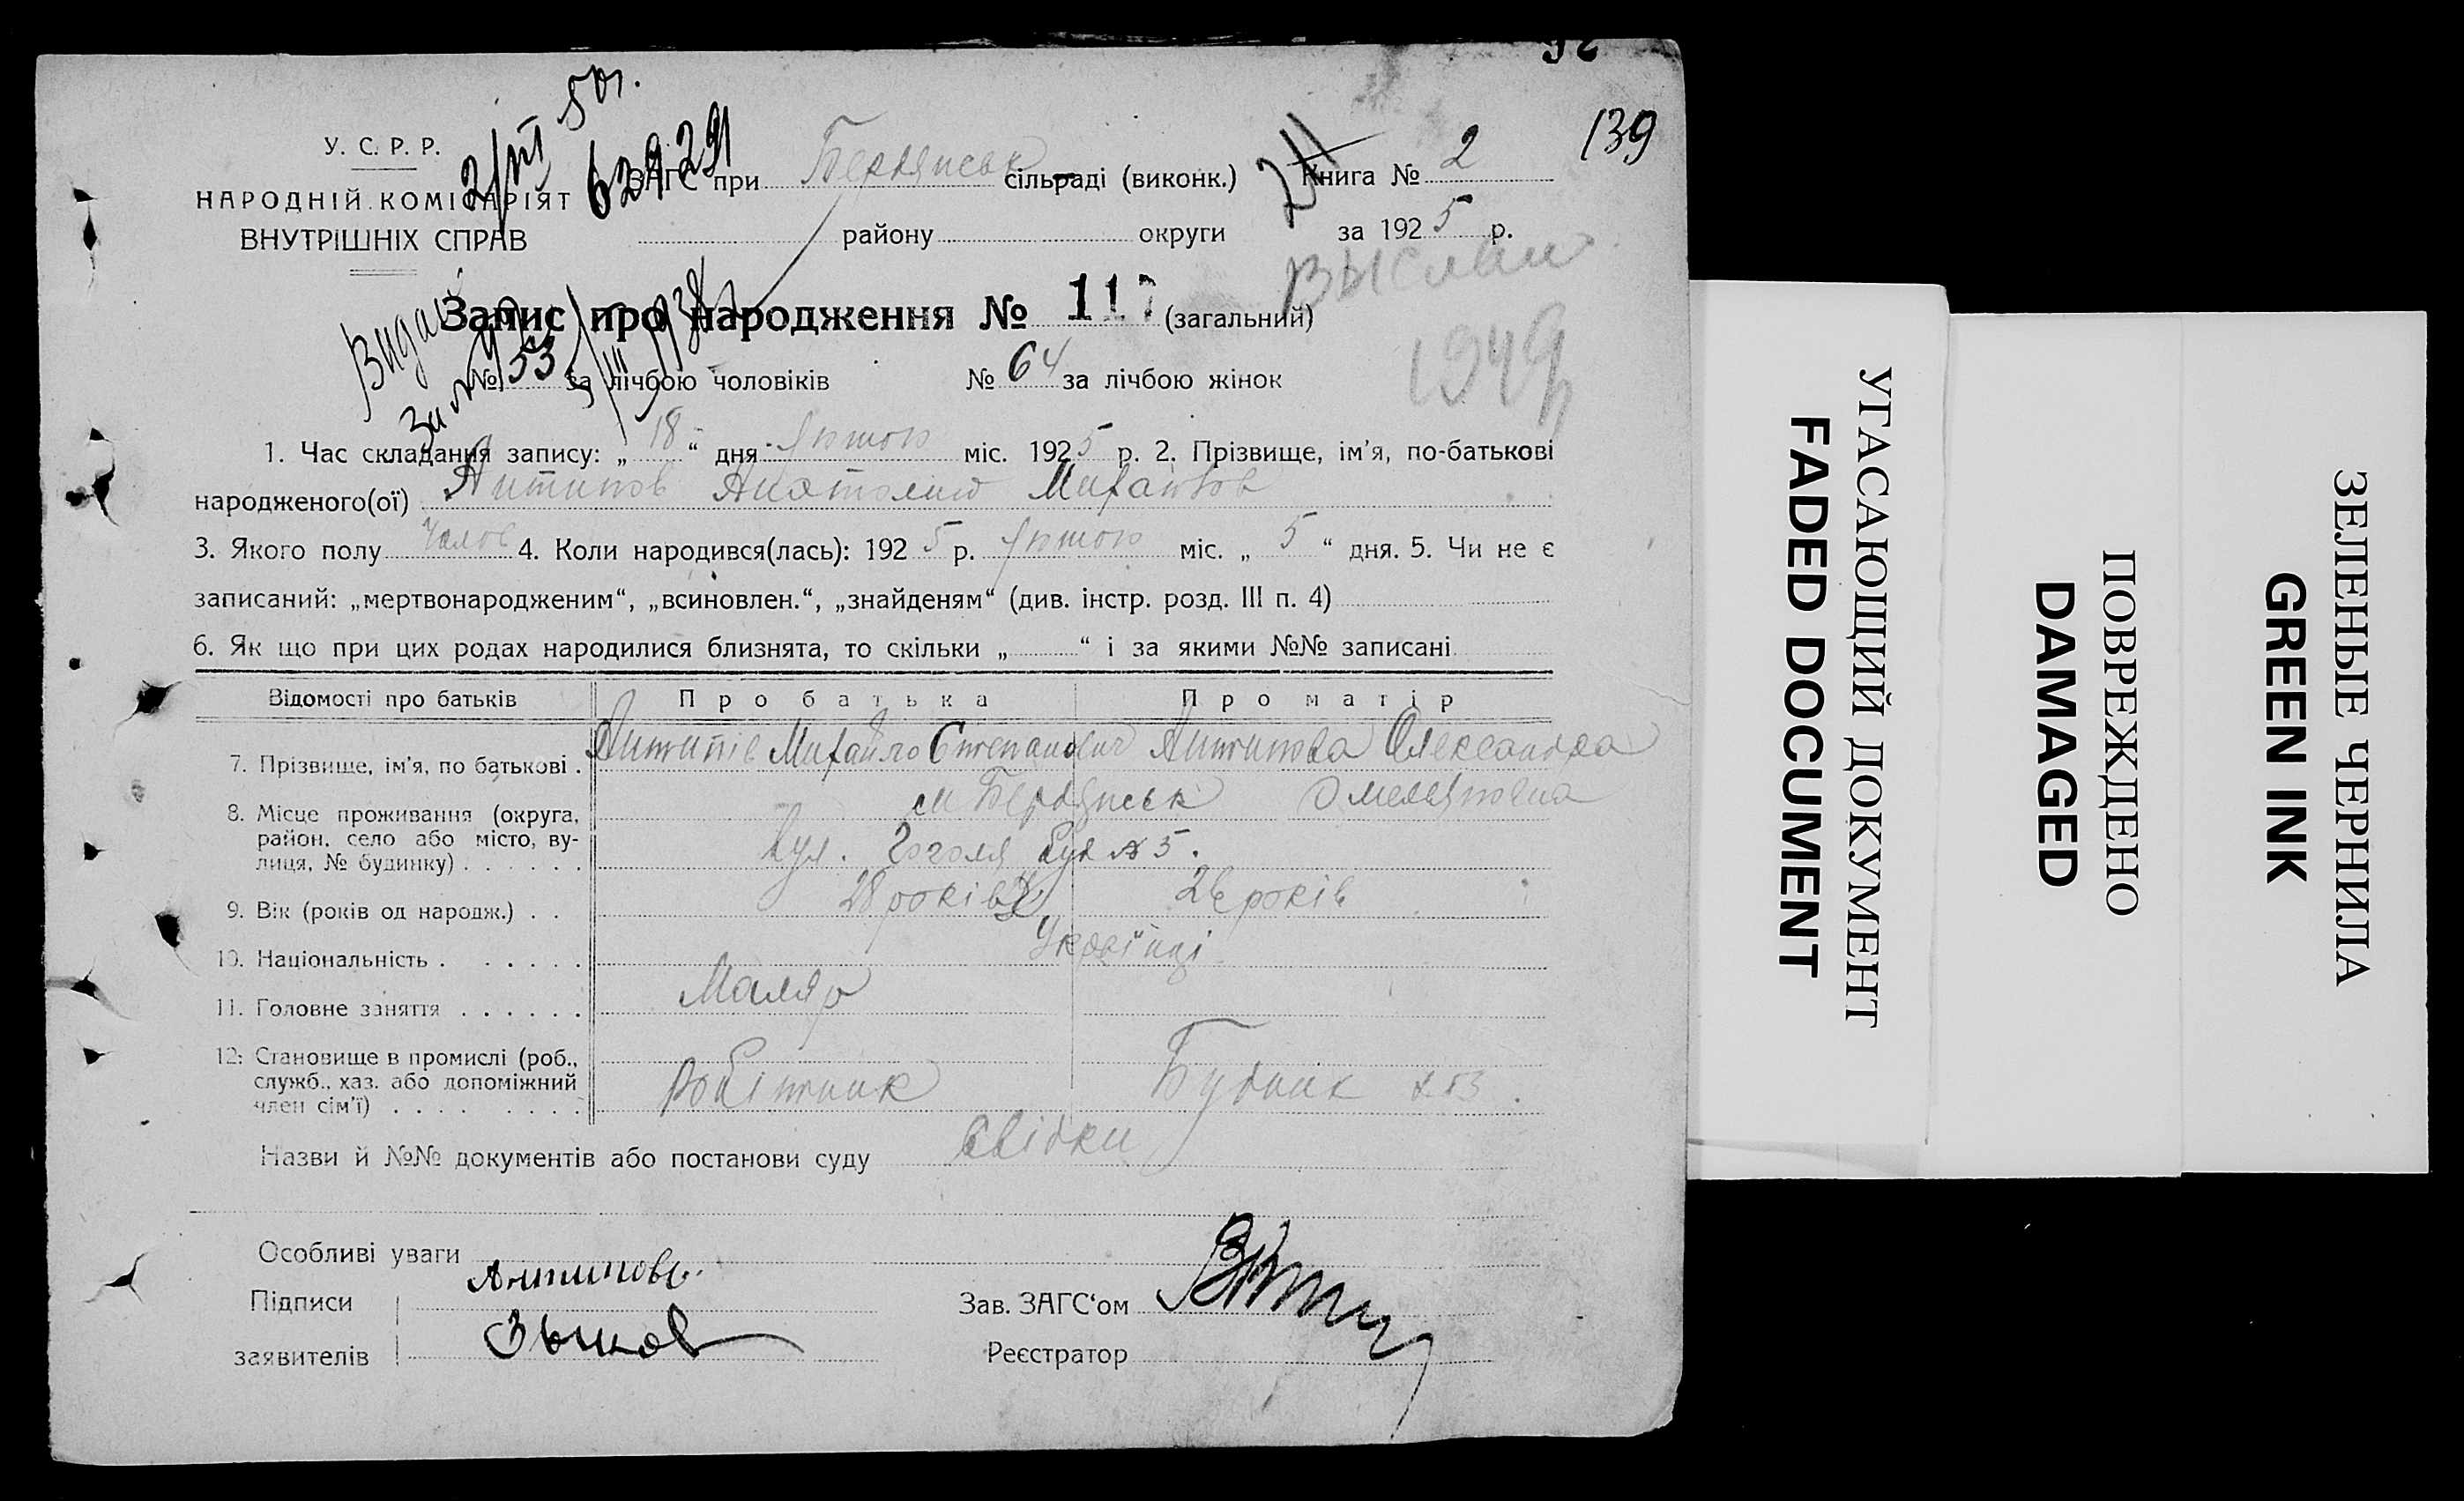 139
У. С. Р. Р.
НАРОДНІЙ КОМІСАРІЯТ
ВНУТРІШНІХ СПРАВ
62921
ЗАГС при Бердянськ сільраді (виконк.) Книга № 2
району округи за 1925 р.
Запис про народження № 117 (загальний)
1949
№ 53 за лічбою чоловіків № 64 за лічбою жінок
1. Час складання запису: „ 18 “ дня Лютого міс. 1925 р. 2. Прізвище, ім’я, по-батькові
народженого(ої) Антипов Анатолий Михайлов
3. Якого полу Чолов 4. Коли народився(лась): 1925 р. Лютого міс. „ 5 “ дня. 5. Чи не є
записаний: „мертвонародженим“, „всиновлен.“, „знайденям“ (див. інстр. розд. III п. 4)
6. Як що при цих родах народилися близнята, то скільки „ “ і за якими №№ записані
Відомості про батьків Про батька Про матір
7. Прізвище, ім’я, по батькові . Антипів Михайло Степанович Антипова Олександра
Омелянівна
8. Місце проживання (округа, м Бердянськ
район, село або місто, ву-
лиця, № будинку) . . . . . . Вул. Гоголя буд № 5.
9. Вік (років од народж.) . . 28 років 26 років
10. Національність . . . . . . Українці
11. Головне заняття . . . . . . Маляр
12. Становище в промислі (роб.,
служб., хаз. або допоміжний
член сім’ї) . . . . . . . . Робітник Будинк
Назви й №№ документів або постанови суду Свідки
Особливі уваги
Підписи Антипов
заявителів
Зав. ЗАГС‘ом
Реєстратор
УГАСАЮЩИЙ ДОКУМЕНТ
FADED DOCUMENT
ПОВРЕЖДЕНО
DAMAGED
ЗЕЛЕНЫЕ ЧЕРНИЛА
GREEN INK